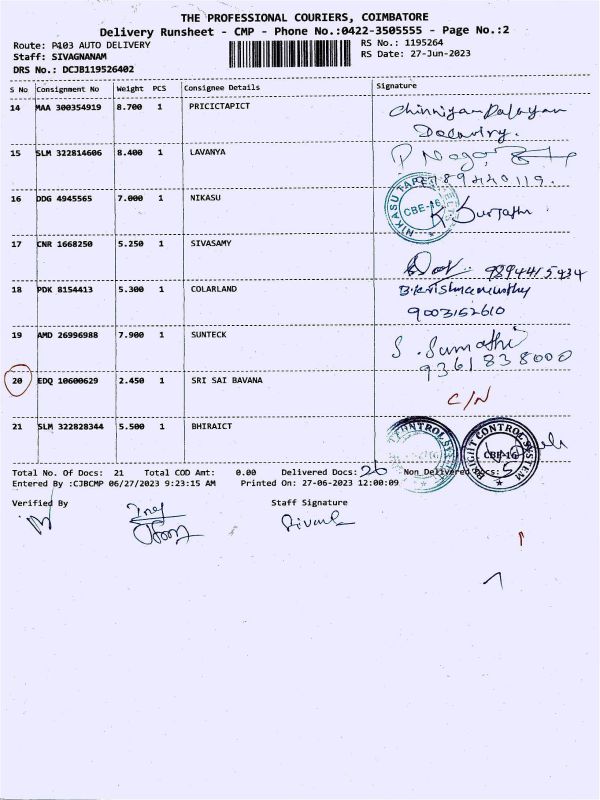 THE PROFESSIONAL COURIERS, COIMBATORE
Delivery Runsheet - CMP - Phone No.:0422-3505555 - Page No.:2
Route: P103 AUTO DELIVERY
RS No.: 1195264
Staff: SIVAGNANAM
RS Date: 27-Jun-2023
DRS No.: DCJB119526402
S No Consignment No Weight PCS Consignee Details Signature
14 MAA 300354919 8.700 1 PRICICTAPICT
15 SLM 322814606 8.400 1 LAVANYA
16 DDG 4945565 7.000 1 NIKASU
NIKASU CBE-16
17 CNR 1668250 5.250 1 SIVASAMY
9894415434
18 PDK 8154413 5.300 1 COLARLAND
B.Krishnamurthy
9003152610
19 AMD 26996988 7.900 1 SUNTECK
S. Sumathi
9361838000
20 EDQ 10600629 2.450 1 SRI SAI BAVANA C/N
21 SLM 322828344 5.500 1 BHIRAICT
CONTROL SYSTEM
CONTROL SYSTEM CBE-16
Total No. Of Docs: 21 Total COD Amt: 0.00 Delivered Docs: 20 Non Delivered Docs:
Entered By :CJBCMP 06/27/2023 9:23:15 AM Printed On: 27-06-2023 12:00:09
Verified By Staff Signature